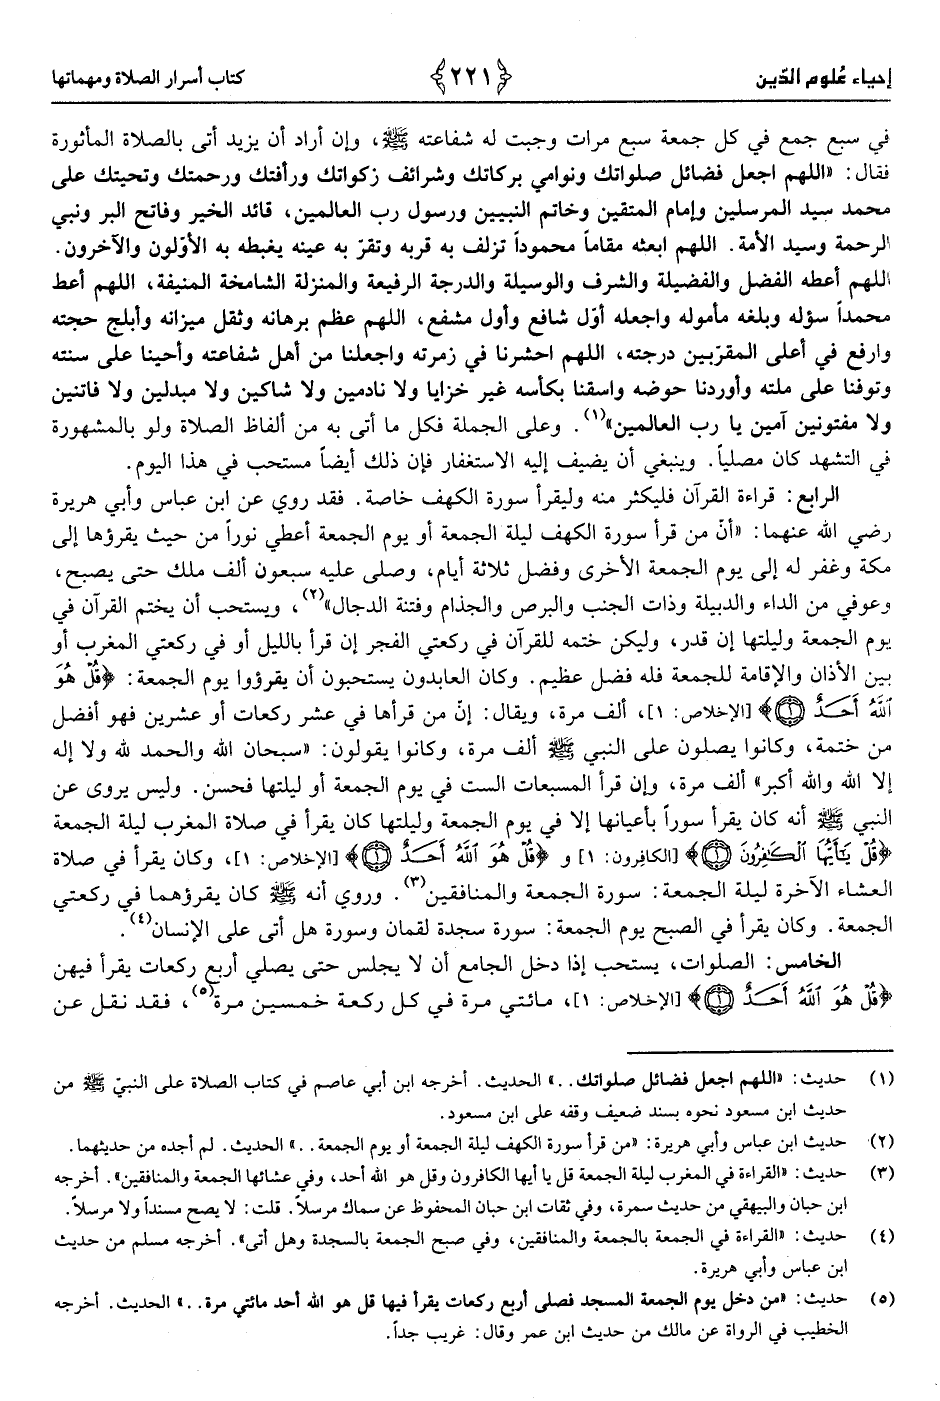 إحياء عُلوم الدّين ﴿٢٢١﴾ كتاب أسرار الصلاة ومهماتها
في سبع جمع في كل جمعة سبع مرات وجبت له شفاعته ﷺ، وإن أراد أن يزيد أتى بالصلاة المأثورة
فقال: «اللهم اجعل فضائل صلواتك ونوامي بركاتك وشرائف زكواتك ورأفتك ورحمتك وتحيتك على
محمد سيد المرسلين وإمام المتقين وخاتم النبيين ورسول رب العالمين، قائد الخير وفاتح البر ونبي
الرحمة وسيد الأمة. اللهم ابعثه مقاماً محموداً تزلف به قربه وتقرّ به عينه يغبطه به الأوّلون والآخرون.
اللهم أعطه الفضل والفضيلة والشرف والوسيلة والدرجة الرفيعة والمنزلة الشامخة المنيفة، اللهم أعط
محمداً سؤله وبلغه مأموله واجعله أوّل شافع وأول مشفع، اللهم عظم برهانه وثقل ميزانه وأبلج حجته
وارفع في أعلى المقرّبين درجته، اللهم احشرنا في زمرته واجعلنا من أهل شفاعته وأحينا على سنته
وتوفنا على ملته وأوردنا حوضه واسقنا بكأسه غير خزايا ولا نادمين ولا شاكين ولا مبدلين ولا فاتنين
ولا مفتونين آمين يا رب العالمين»(١). وعلى الجملة فكل ما أتى به من ألفاظ الصلاة ولو بالمشهورة
في التشهد كان مصلياً. وينبغي أن يضيف إليه الاستغفار فإن ذلك أيضاً مستحب في هذا اليوم.
الرابع: قراءة القرآن فليكثر منه وليقرأ سورة الكهف خاصة. فقد روي عن ابن عباس وأبي هريرة
رضي الله عنهما: «أنّ من قرأ سورة الكهف ليلة الجمعة أو يوم الجمعة أعطي نوراً من حيث يقرؤها إلى
مكة وغفر له إلى يوم الجمعة الأخرى وفضل ثلاثة أيام، وصلى عليه سبعون ألف ملك حتى يصبح،
وعوفي من الداء والدبيلة وذات الجنب والبرص والجذام وفتنة الدجال»(٢)، ويستحب أن يختم القرآن في
يوم الجمعة وليلتها إن قدر، وليكن ختمه للقرآن في ركعتي الفجر إن قرأ بالليل أو في ركعتي المغرب أو
بين الأذان والإقامة للجمعة فله فضل عظيم. وكان العابدون يستحبون أن يقرؤوا يوم الجمعة: ﴿قُلْ هُوَ
ٱللَّهُ أَحَدٌ ١﴾ [الإخلاص: ١]، ألف مرة، ويقال: إنّ من قرأها في عشر ركعات أو عشرين فهو أفضل
من ختمة، وكانوا يصلون على النبي ﷺ ألف مرة، وكانوا يقولون: «سبحان الله والحمد لله ولا إله
إلا الله والله أكبر» ألف مرة، وإن قرأ المسبعات الست في يوم الجمعة أو ليلتها فحسن. وليس يروى عن
النبي ﷺ أنه كان يقرأ سوراً بأعيانها إلا في يوم الجمعة وليلتها كان يقرأ في صلاة المغرب ليلة الجمعة
﴿قُلْ يَـٰٓأَيُّهَا ٱلْكَـٰفِرُونَ ١﴾ [الكافرون: ١] و ﴿قُلْ هُوَ ٱللَّهُ أَحَدٌ ١﴾ [الإخلاص: ١]، وكان يقرأ في صلاة
العشاء الآخرة ليلة الجمعة: سورة الجمعة والمنافقين(٣). وروي أنه ﷺ كان يقرؤهما في ركعتي
الجمعة. وكان يقرأ في الصبح يوم الجمعة: سورة سجدة لقمان وسورة هل أتى على الإنسان(٤).
الخامس: الصلوات، يستحب إذا دخل الجامع أن لا يجلس حتى يصلي أربع ركعات يقرأ فيهن
﴿قُلْ هُوَ ٱللَّهُ أَحَدٌ ١﴾ [الإخلاص: ١]، مائتي مرة في كل ركعة خمسين مرة(٥)، فقد نقل عن
(١) حديث: «اللهم اجعل فضائل صلواتك..» الحديث. أخرجه ابن أبي عاصم في كتاب الصلاة على النبيّ ﷺ من
حديث ابن مسعود نحوه بسند ضعيف وقفه على ابن مسعود.
(٢) حديث ابن عباس وأبي هريرة: «من قرأ سورة الكهف ليلة الجمعة أو يوم الجمعة..» الحديث. لم أجده من حديثهما.
(٣) حديث: «القراءة في المغرب ليلة الجمعة قل يا أيها الكافرون وقل هو الله أحد، وفي عشائها الجمعة والمنافقين». أخرجه
ابن حبان والبيهقي من حديث سمرة، وفي ثقات ابن حبان المحفوظ عن سماك مرسلاً. قلت: لا يصح مسنداً ولا مرسلاً.
(٤) حديث: «القراءة في الجمعة بالجمعة والمنافقين، وفي صبح الجمعة بالسجدة وهل أتى». أخرجه مسلم من حديث
ابن عباس وأبي هريرة.
(٥) حديث: «من دخل يوم الجمعة المسجد فصلى أربع ركعات يقرأ فيها قل هو الله أحد مائتي مرة..» الحديث. أخرجه
الخطيب في الرواة عن مالك من حديث ابن عمر وقال: غريب جداً.